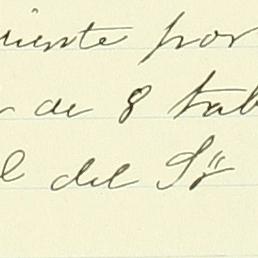 riente por
de 8 tab
l del Sr